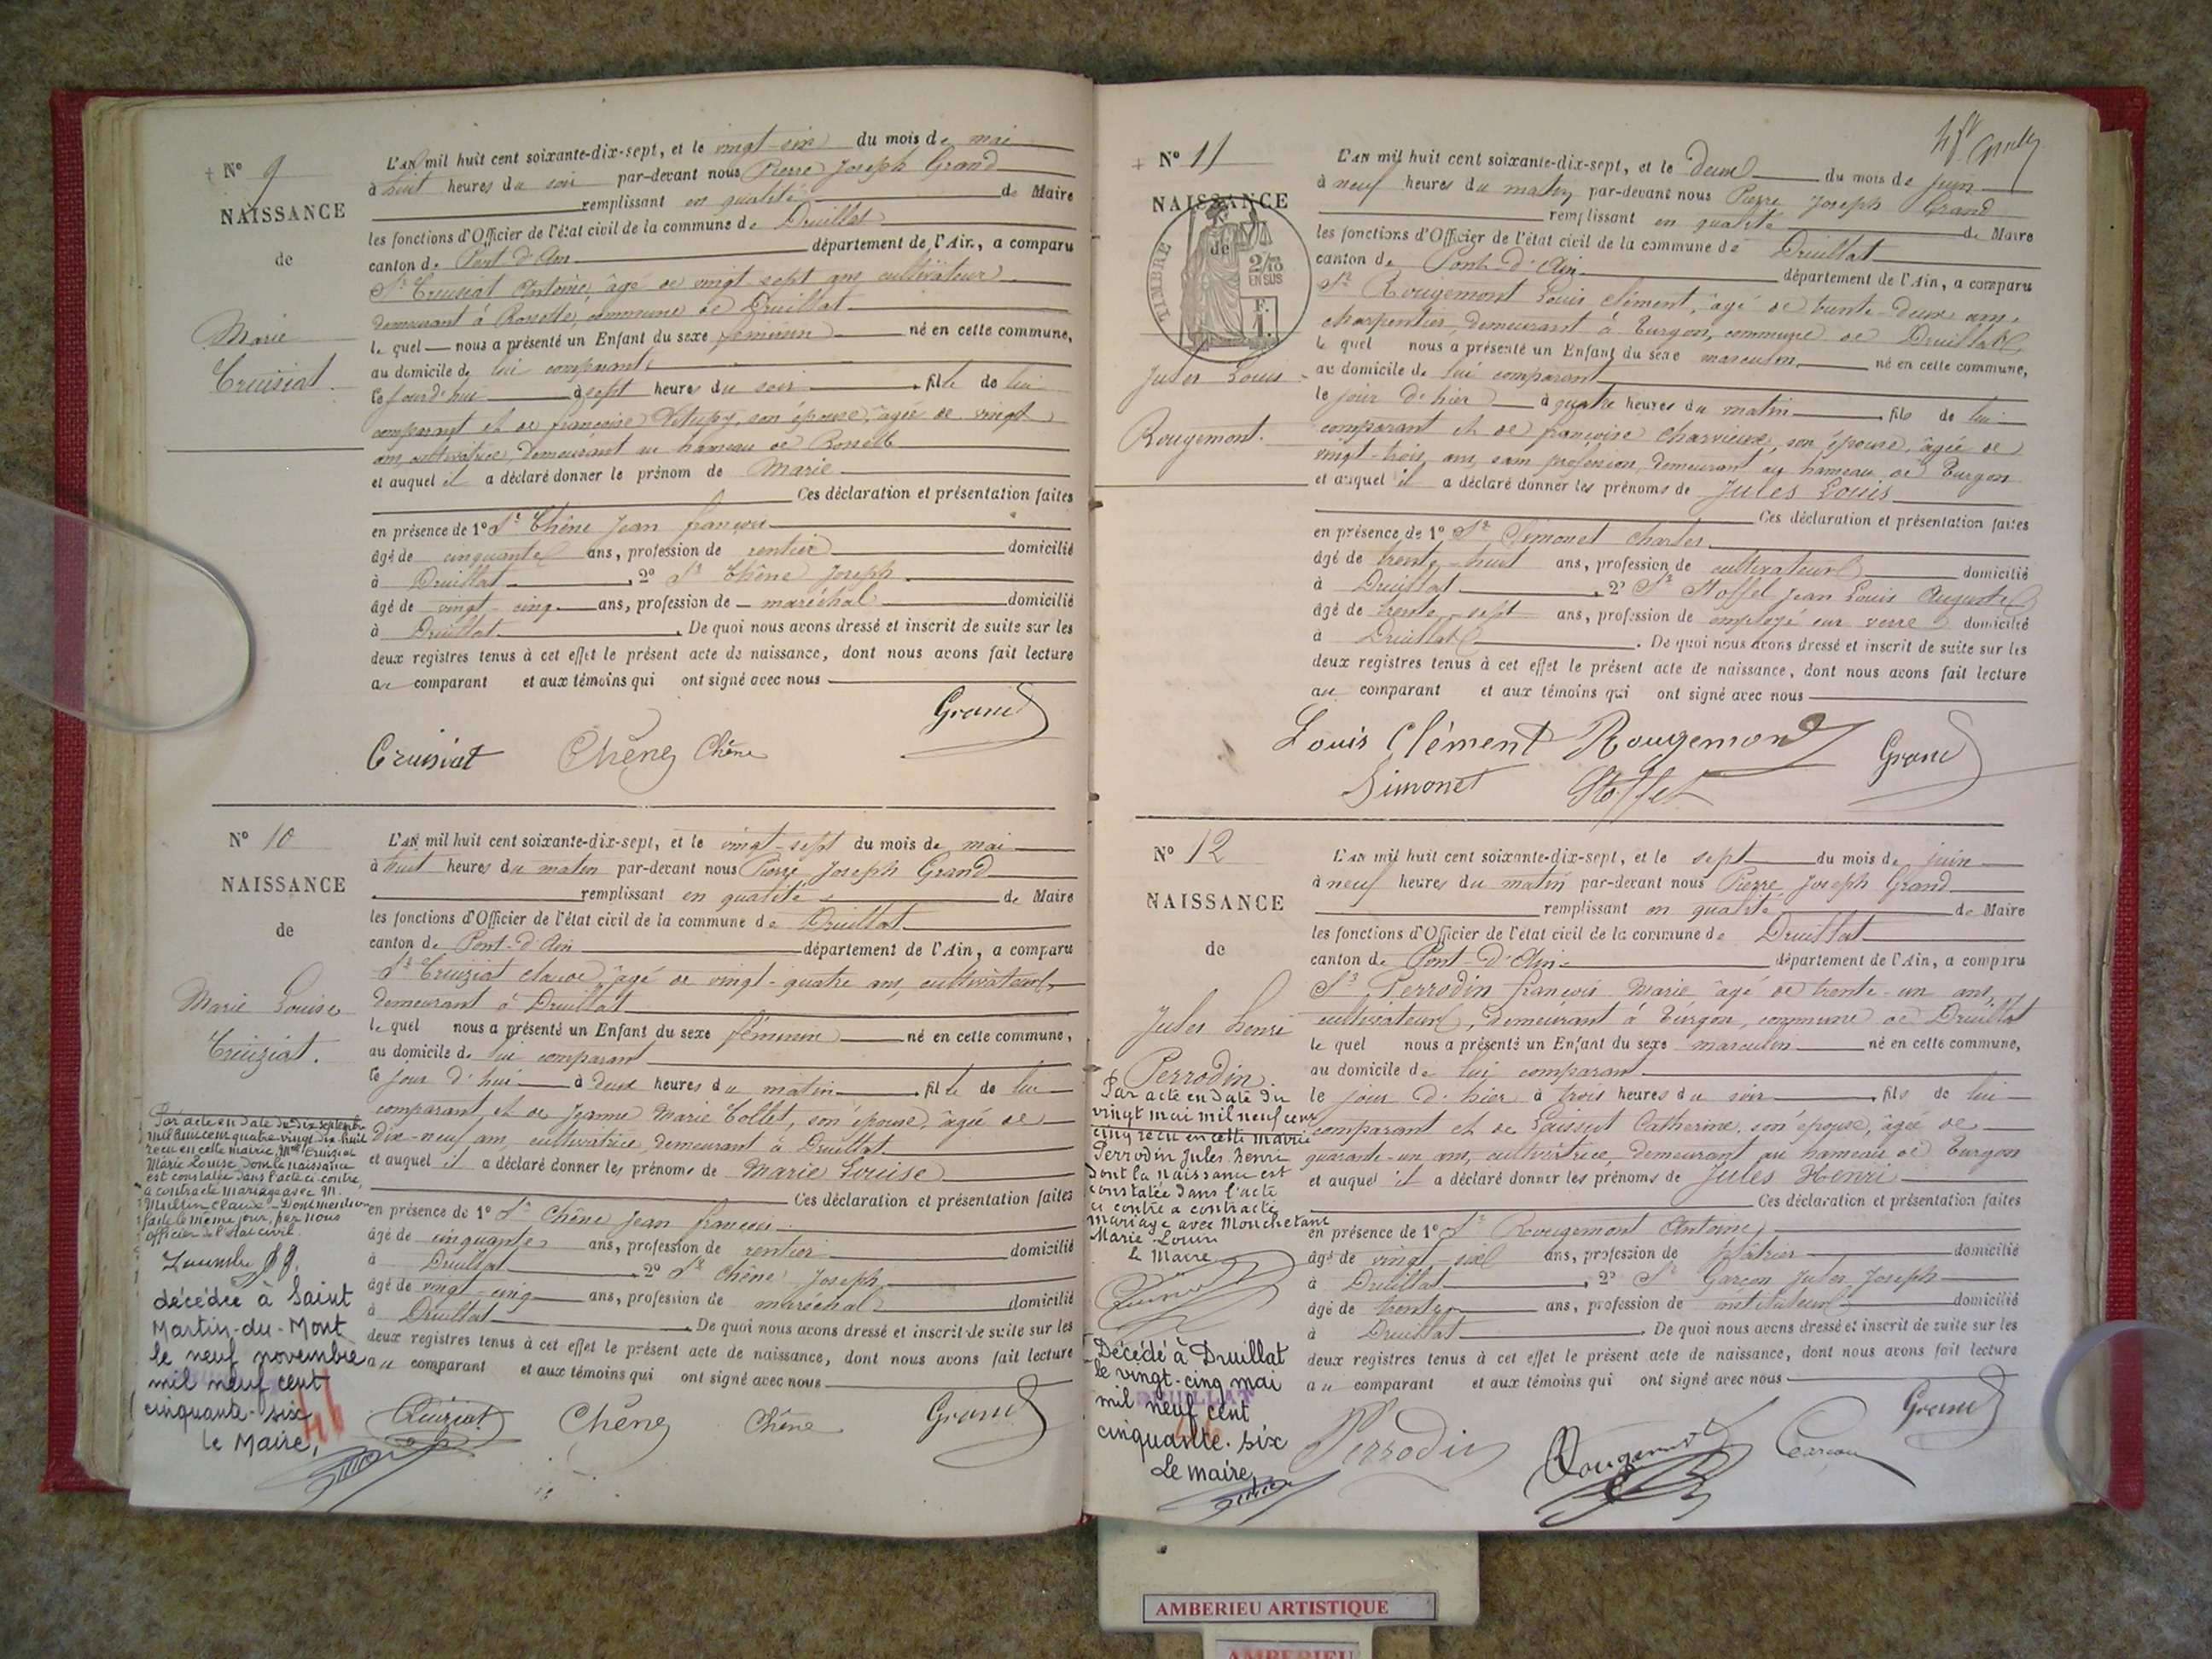 N° 9
NAISSANCE
de
Marie
Cruisiat
L'AN mil huit cent soixante-dix-sept, et le vingt-six du mois de mai
à huit heures du soir par-devant nous Pierre Joseph Grand
remplissant en qualité de Maire
les fonctions d'Officier de l'état civil de la commune de Druillat
canton de Pont d'Ain département de l'Ain, a comparu
Sr Cruisiat Antoine, âgé de vingt-sept ans, cultivateur
demeurant à Rossette, commune de Druillat
le quel nous a présenté un Enfant du sexe féminin né en cette commune,
au domicile de lui comparant
ce jourd'hui à sept heures du soir fille de lui
comparant et de françoise son épouse, âgée de vingt
ans, cultivatrice, demeurant au hameau de Rossette
et auquel il a déclaré donner le prénom de Marie
Ces déclaration et présentation faites
en présence de 1° Sr Chêne Jean françois
âgé de cinquante ans, profession de rentier domicilié
à Druillat 2° Sr Chêne Joseph
âgé de vingt-cinq ans, profession de maréchal domicilié
à Druillat. De quoi nous avons dressé et inscrit de suite sur les
deux registres tenus à cet effet le présent acte de naissance, dont nous avons fait lecture
au comparant et aux témoins qui ont signé avec nous
Grand
Cruisiat Chêne Chêne
N° 10
NAISSANCE
de
Marie Louise
Cruiziat.
L'AN mil huit cent soixante-dix-sept, et le vingt-sept du mois de mai
à huit heures du matin par-devant nous Pierre Joseph Grand
remplissant en qualité de Maire
les fonctions d'Officier de l'état civil de la commune de Druillat
canton de Pont-d'Ain département de l'Ain, a comparu
Sr Cruiziat claude, âgé de vingt-quatre ans, cultivateur,
demeurant à Druillat
le quel nous a présenté un Enfant du sexe féminin né en cette commune,
au domicile de lui comparant
ce jour d'hui à deux heures du matin fille de lui
comparant, et de Jeanne Marie Collet, son épouse, âgée de
dix-neuf ans, cultivatrice, demeurant à Druillat
et auquel il a déclaré donner les prénoms de Marie Louise
Ces déclaration et présentation faites
en présence de 1° Sr Chêne Jean françois
âgé de cinquante ans, profession de rentier domicilié
à Druillat 2° Sr Chêne Joseph
âgé de vingt-cinq ans, profession de maréchal domicilié
à Druillat. De quoi nous avons dressé et inscrit de suite sur les
deux registres tenus à cet effet le présent acte de naissance, dont nous avons fait lecture
au comparant et aux témoins qui ont signé avec nous
Cruiziat Chêne Chêne Grand
Par acte en date du dix septembre
mil huit cent quatre-vingt-dix-huit
reçu en cette mairie, Mlle Cruiziat
Marie Louise, dont la naissance
est constatée dans l'acte ci-contre,
a contracté mariage avec M.
claude. Dont mention
faite le même jour, par nous
officier de l'état civil.
décédée à Saint
Martin-du-Mont
le neuf novembre
mil neuf cent
cinquante-six
le Maire,
46
N° 11
NAISSANCE
de
TIMBRE
2/10
EN SUS
F.
1.
Jules Louis
Rougemont.
L'AN mil huit cent soixante-dix-sept, et le deux du mois de juin
à neuf heures du matin par-devant nous Pierre Joseph Grand
remplissant en qualité de Maire
les fonctions d'Officier de l'état civil de la commune de Druillat
canton de Pont-d'Ain département de l'Ain, a comparu
Sr Rougemont Louis clément, âgé de trente-deux ans,
charpentier, demeurant à Turgon, commune de Druillat
le quel nous a présenté un Enfant du sexe masculin né en cette commune,
au domicile de lui comparant
le jour d'hier à quatre heures du matin fils de lui
comparant et de françoise Charvieux, son épouse, âgée de
vingt-trois ans, sans profession, demeurant au hameau de Turgon
et auquel il a déclaré donner les prénoms de Jules Louis
Ces déclaration et présentation faites
en présence de 1° Sr Simonet Charles
âgé de trente-huit ans, profession de cultivateur domicilié
à Druillat 2° Sr Stoffel Jean Louis Auguste
âgé de trente-sept ans, profession de employé sur verre domicilié
à Druillat. De quoi nous avons dressé et inscrit de suite sur les
deux registres tenus à cet effet le présent acte de naissance, dont nous avons fait lecture
au comparant et aux témoins qui ont signé avec nous
Louis Clément Rougemond Grand
Simonet Stoffel
N° 12
NAISSANCE
de
Jules henri
Perrodin.
L'AN mil huit cent soixante-dix-sept, et le sept du mois de juin
à neuf heures du matin par-devant nous Pierre Joseph Grand
remplissant en qualité de Maire
les fonctions d'Officier de l'état civil de la commune de Druillat
canton de Pont-d'Ain département de l'Ain, a comparu
Sr Perrodin françois Marie, âgé de trente-un ans,
cultivateur, demeurant à Turgon, commune de Druillat
le quel nous a présenté un Enfant du sexe masculin né en cette commune,
au domicile de lui comparant
le jour d'hier à trois heures du soir fils de lui
comparant et de Catherine, son épouse, âgée de
quarante-un ans, cultivatrice, demeurant au hameau de Turgon
et auquel il a déclaré donner les prénoms de Jules Henri
Ces déclaration et présentation faites
en présence de 1° Sr Rougemont Antoine
âgé de vingt-six ans, profession de plâtrier domicilié
à Druillat 2° Sr Garçon Jules Joseph
âgé de trente ans, profession de instituteur domicilié
à Druillat. De quoi nous avons dressé et inscrit de suite sur les
deux registres tenus à cet effet le présent acte de naissance, dont nous avons fait lecture
au comparant et aux témoins qui ont signé avec nous
Grand
Perrodin Rougemont Garçon
Par acte en date du
vingt mai mil neuf cent
cinq reçu en cette mairie
Perrodin Jules henri
dont la naissance est
constatée dans l'acte
ci contre a contracté
mariage avec Monchetant
Marie Louise
Le Maire
Décédé à Druillat
le vingt-cinq mai
mil neuf cent
cinquante-six
Le maire,
DRUILLAT
AMBERIEU ARTISTIQUE
AMBERIEU